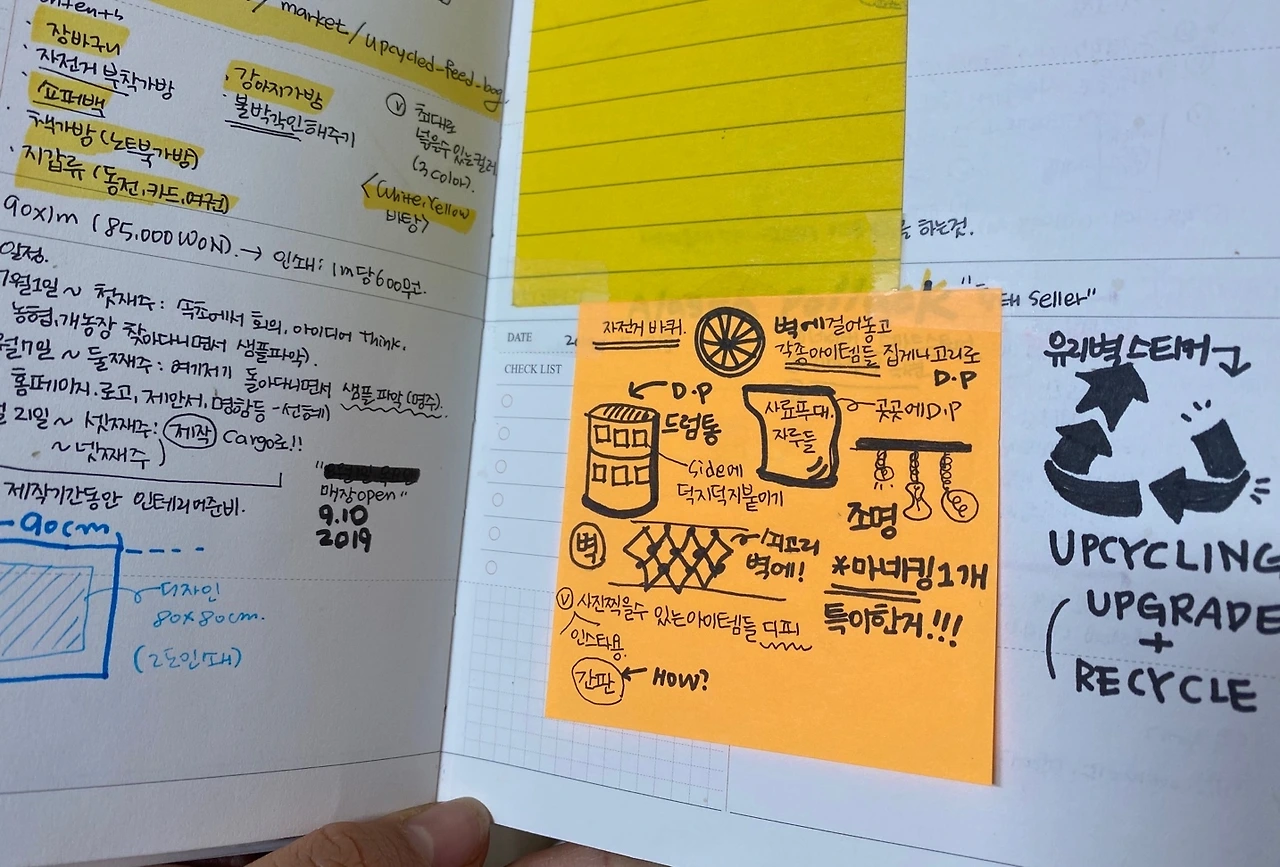 / market / upcycled_feed_bag
· 장바구니
· 자전거 부착가방
· 쇼퍼백
· 책가방 (노트북가방)
· 지갑류 (동전, 카드, 여권)
· 강아지가방
· 불박각인해주기
ⓥ 최대로
넣을수있는컬러
(3 color).
<White, Yellow
바탕>
90x1m (85,000 WON). → 인쇄: 1m당 600무건.
일정.
7월1일 ~ 첫째주: 속초에서 회의, 아이디어 Think.
농협, 개농장 찾아다니면서 샘플파악).
월7일 ~ 둘째주: 여기저기 돌아다니면서 샘플파악(명주).
홈페이지. 로고, 제안서, 명함등 -선혜)
월 21일 ~ 셋째주: 제작 Cargo로!!
~ 넷째주
제작기간동안 인테리어준비.
매장open"
9.10
2019
90cm
디자인
80x80cm.
(2도인쇄)
하는것.
Seller"
DATE
CHECK LIST
자전거 바퀴.
벽에 걸어놓고
각종아이템들 집게나 고리로
D.P
D.P
드럼통
Side에
덕지덕지붙이기
사료푸대.
자루들
곳곳에 D.P
조명
벽
벽에!
*마네킹 1개
특이한거!!!
ⓥ 사진찍을수 있는아이템들 디피
인스타용.
간판 ← HOW?
유리벽스티커
UPCYCLING
UPGRADE
+
RECYCLE